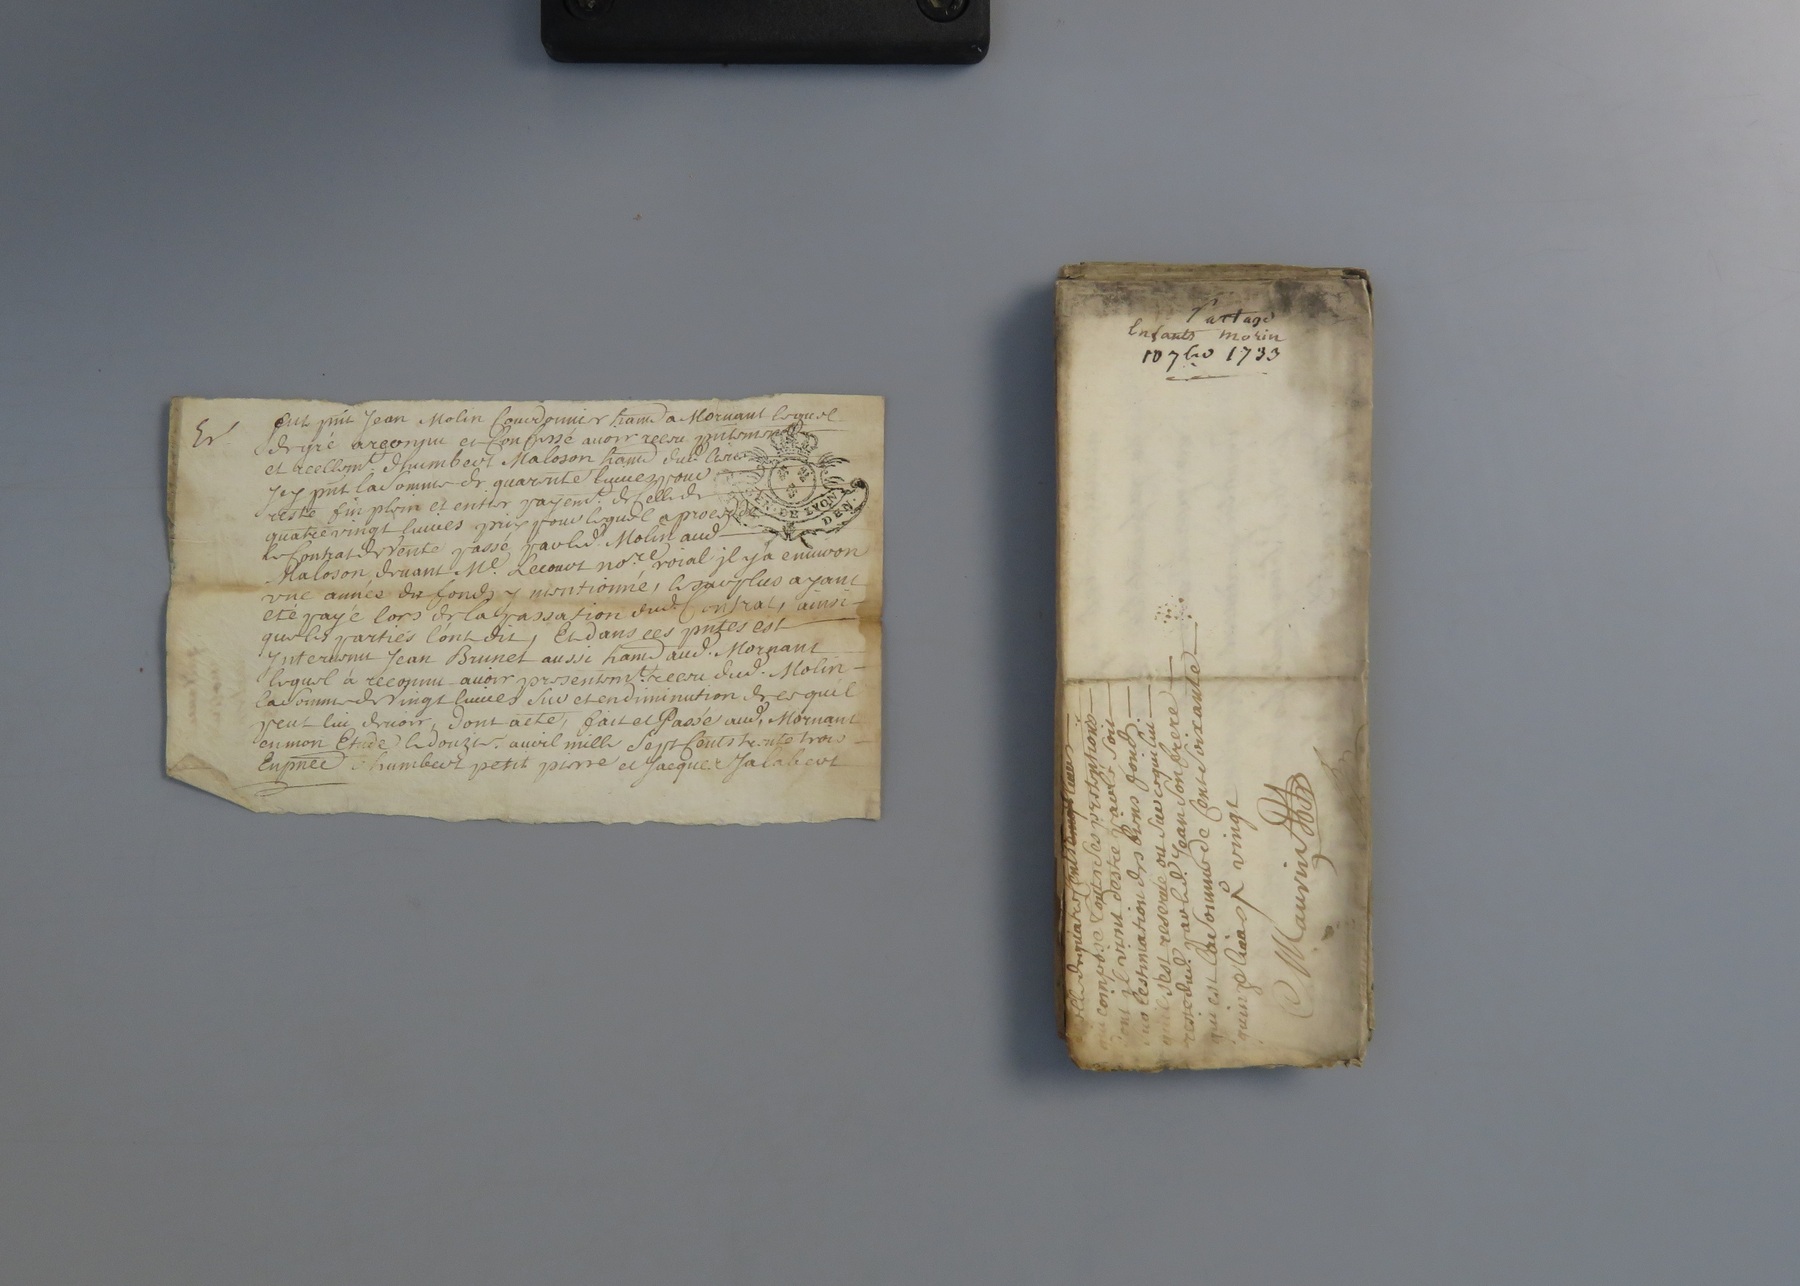 Er
Est pnt Jean Molin Courdonnier hant a Mornant lequel
de gré a reconnu et Confessé avoir receu pntement
et reellemt. d'humbert Maloson hant dud. lieu
Icy pnt la somme de quarente livres pour
reste fin plein et entier payemt. de Celle de
quatre vingt livres prix pour lequel a procede
le Contrat de vente passé par led. Molin aud.
Maloson devant Me. Lecourt nore. roial il y a environ
une année des fonds y mentionné, le surplus ayant
eté payé lors de la passation dud. Contrat, ainsi
que les parties l'ont dit, Et dans ces pntes est
Intervenu Jean Brunet aussi hant aud. Mornant
lequel à reconnu avoir presentemt. receu dud. Molin
la somme de vingt livres sur et en diminution de ce qu'il
peut lui devoir, dont acte, fait et Passé aud. Mornant
en mon Etude le douze. avril mille Sept Cents trente trois
En pnce d'humbert petit pierre et Jacques Jalabert
DE LYON
DEN.
Partage
Enfants Morin
10 7bre 1733
qui compose toutes ses pretentions
dont il vient d'estre parlé soit
sur l'estimation des biens fonds
qu'il s'est reservé ou sur ce qui lui
reste dud. par led. Jean son frere
qui est la somme de Cent soixante
quinze livres p. vingt
Maurin